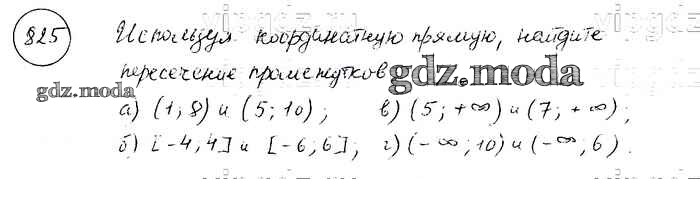 825
Используя координатную прямую, найдите
пересечение промежутков
gdz.moda
gdz.moda
а) (1; 8) и (5; 10);   в) (5; +∞) и (7; +∞);
б) [-4; 4] и [-6; 6];   г) (-∞; 10) и (-∞; 6).